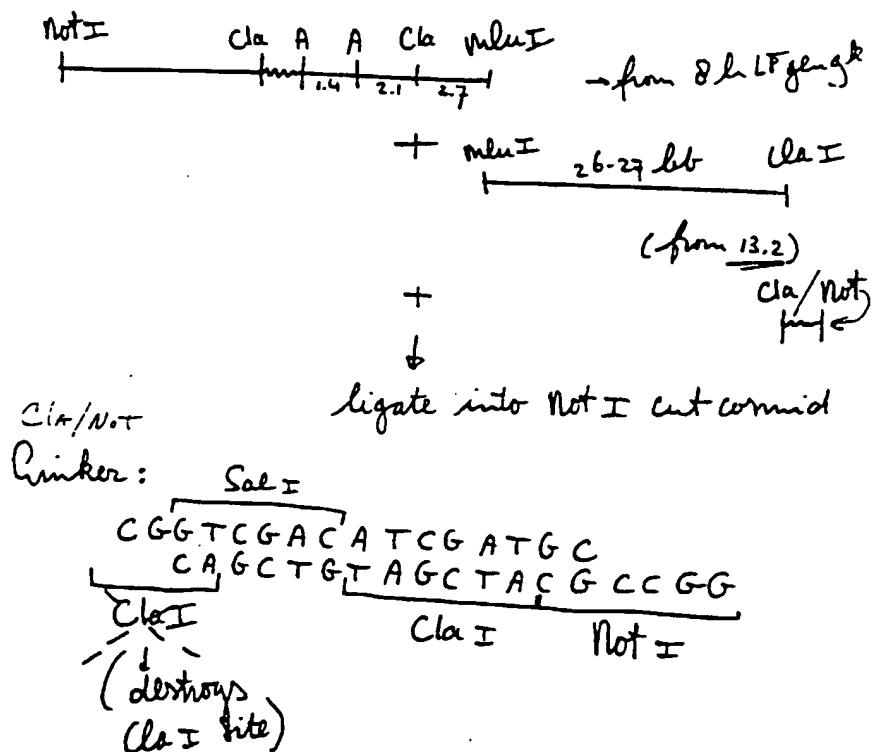 Not I
Cla A A Cla mlu I
1.4 2.1 2.7
→ from 8 h LF
+
mlu I 26-27 kb Cla I
(from 13.2)
Cla/Not
+
↓
ligate into Not I cut cosmid
Cla/Not
Linker:
Sal I
C G G T C G A C A T C G A T G C
C A G C T G T A G C T A C G C C G G
Cla I
Cla I
Not I
(destroys
Cla I site)